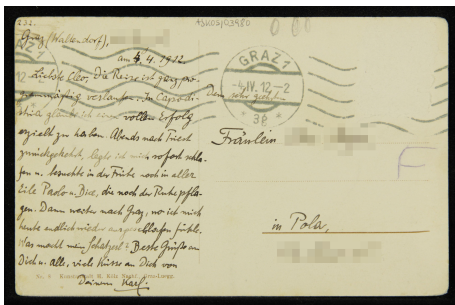 232.
*SK05/03980
Graz (Waltendorf),
am 4. 4. 1912.
Liebste Cleo, Die Reise ist ganz pro-
grammäßig verlaufen. In Capodi-
stria glaube ich einen vollen Erfolg
erzielt zu haben. Abends nach Triest
zurückgekehrt, legte ich mich sofort schla-
fen u. besuchte in der Früh noch in aller
Eile Paolo u. Dice, die noch der Ruhe pfla-
gen. Dann weiter nach Graz, wo ich mich
heute endlich wieder ausgeschlafen fühle.
Was macht mein Schatzerl? Beste Grüße an
Dich u. alle, viele Küsse an Dich von
Deinem Karl.
GRAZ 1
-4.IV.12-2
* 3p *
Fräulein
in Pola,
F